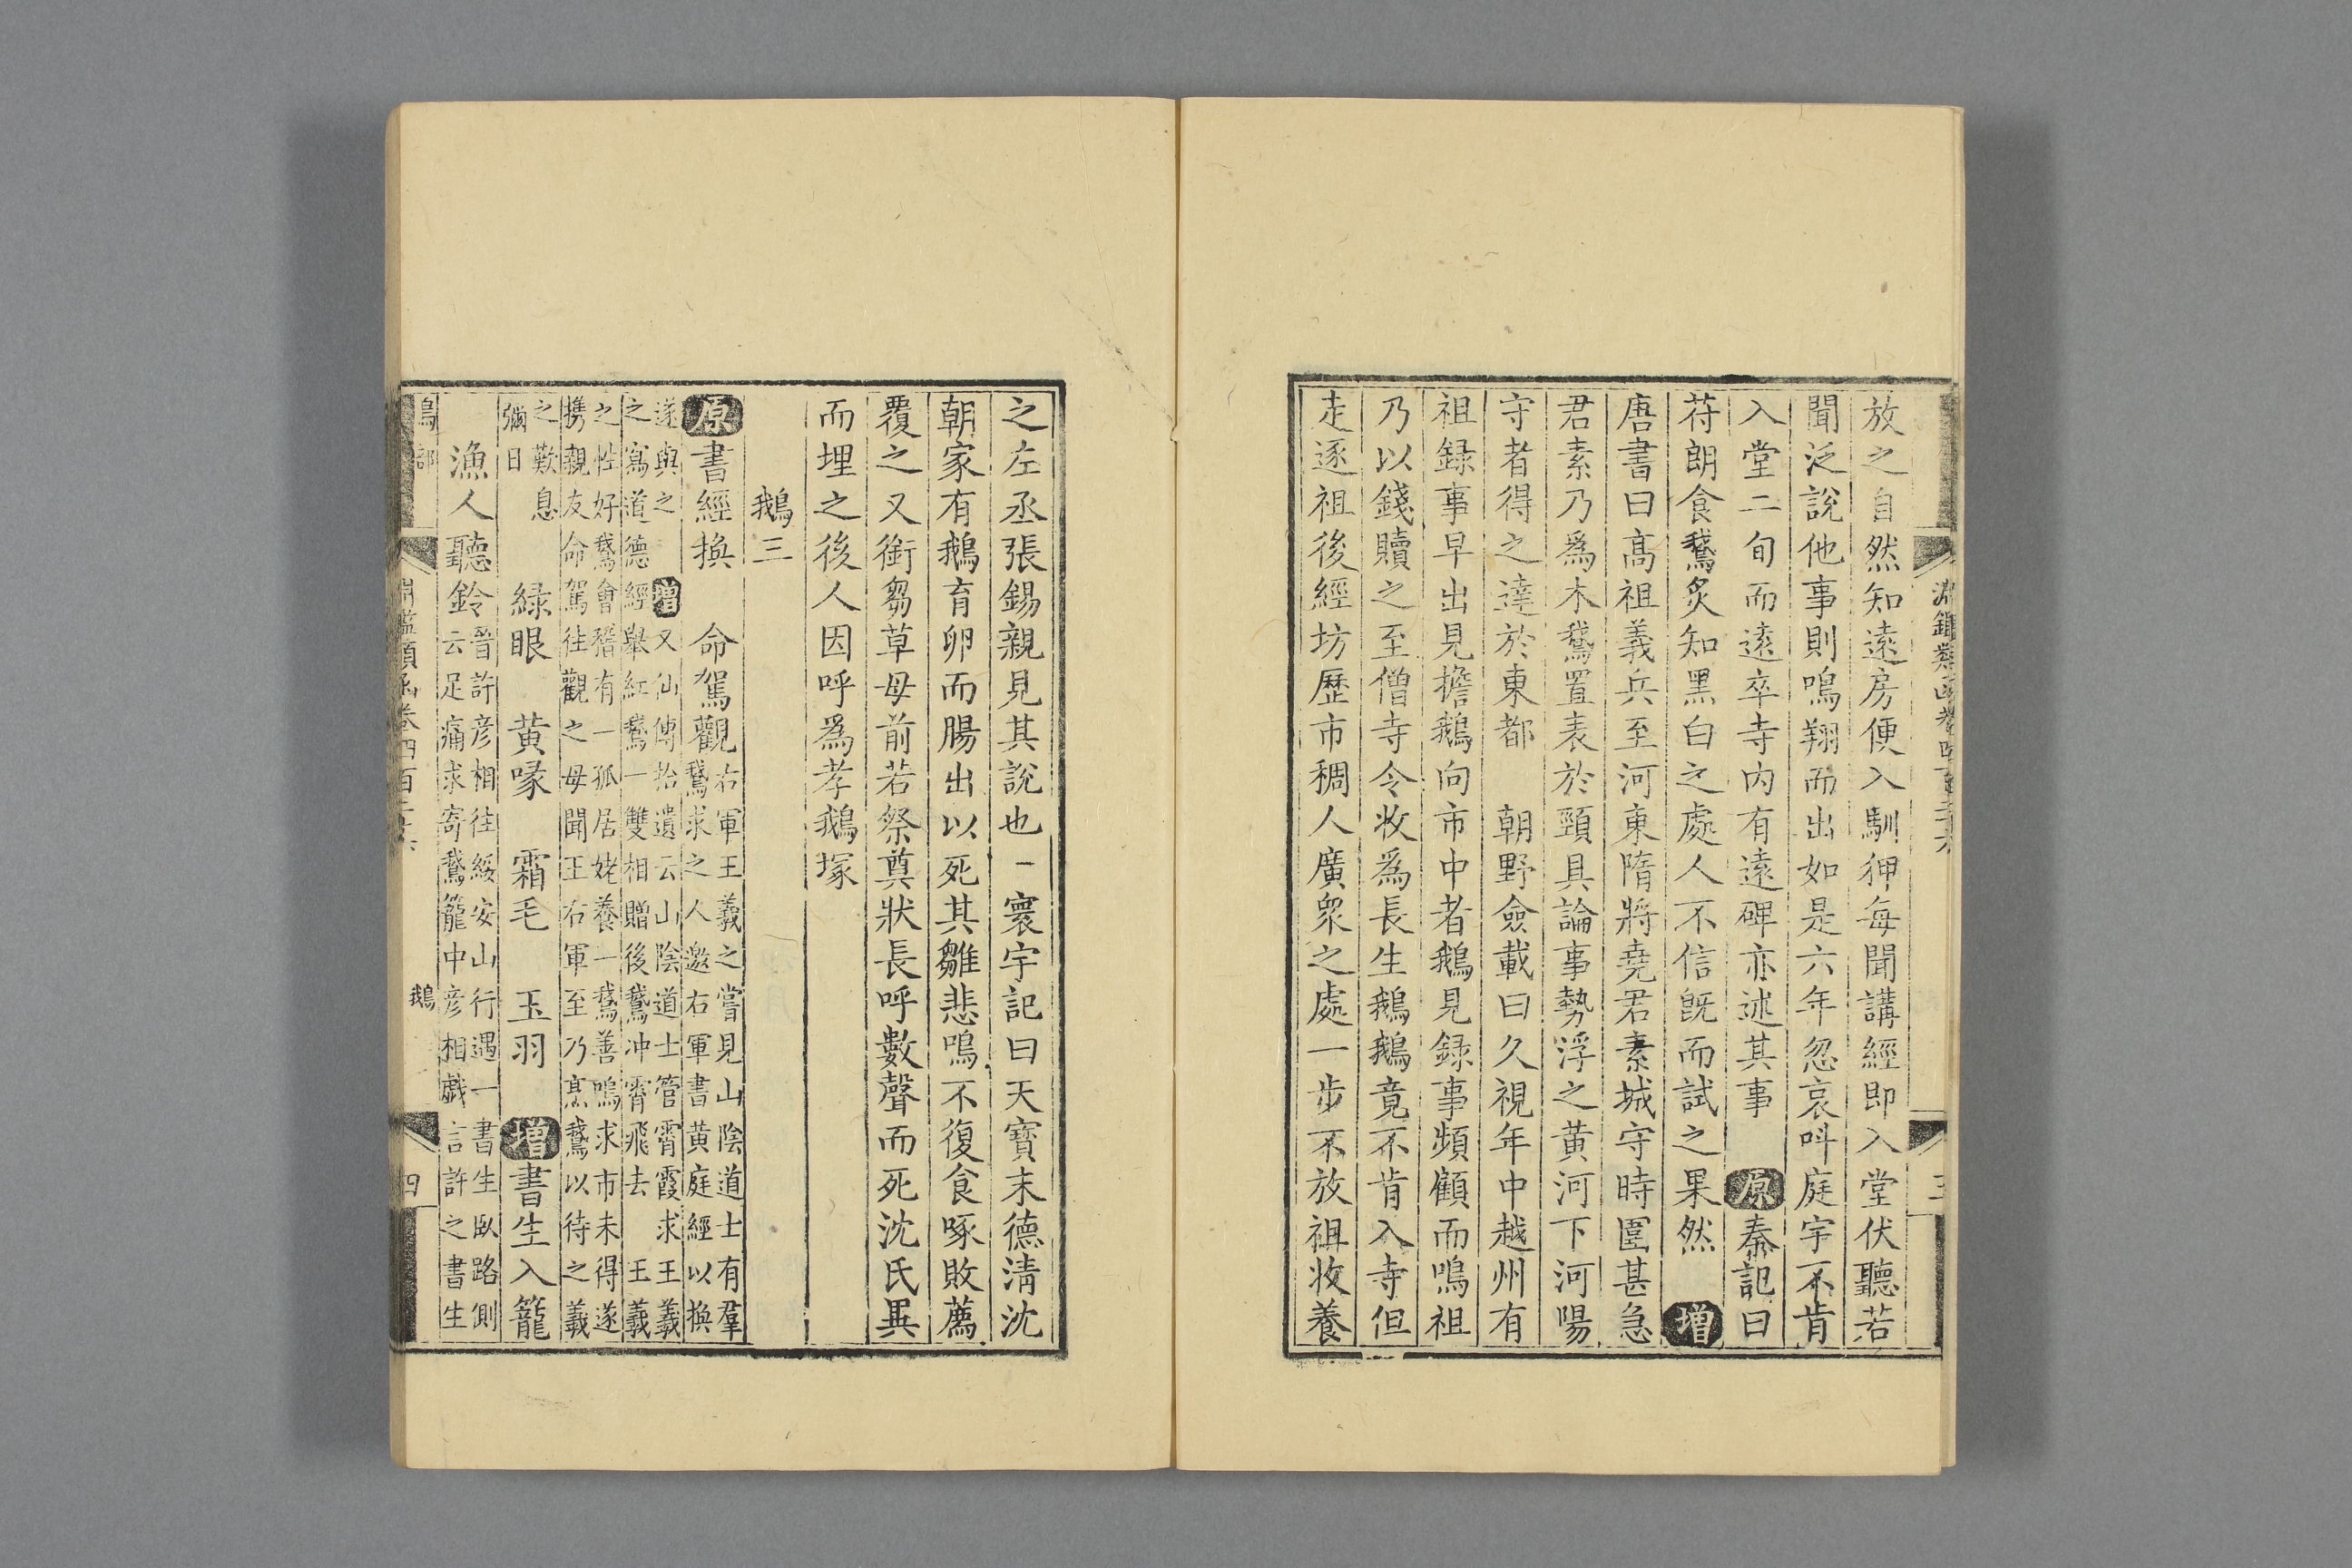 放之自然知遠房便入馴狎每聞講經即入堂伏聽若
聞泛說他事則鳴翔而出如是六年忽哀呌庭宇不肯
入堂二旬而遠卒寺内有遠碑亦述其事　原秦記曰
苻朗食鵞炙知黑白之處人不信旣而試之果然　增
唐書曰髙祖義兵至河東隋將堯君素城守時圍甚急
君素乃爲木鵞置表於頸具論事勢浮之黃河下河陽
守者得之達於東都　朝野僉載曰久視年中越州有
祖録事早出見擔鵝向市中者鵝見録事頻顧而鳴祖
乃以錢贖之至僧寺令收爲長生鵝鵝竟不肯入寺但
走逐祖後經坊歴市稠人廣衆之處一步不放祖收養
之左丞張錫親見其說也　寰宇記曰天寶末德清沈
朝家有鵝育卵而腸出以死其雛悲鳴不復食啄敗薦
覆之又銜芻草母前若祭奠狀長呼數聲而死沈氏異
而埋之後人因呼爲孝鵝塚
鵝三
原書經換　命駕觀右軍王羲之嘗見山陰道士有羣
鵞求之人邀右軍書黃庭經以換
遂與之　增又仙傳拾遺云山陰道士管霄霞求王羲
之寫道德經舉紅鵞一雙相贈後鵞冲霄飛去　王羲
之性好鵞會稽有一孤居姥養一鵞善鳴求市未得遂
携親友命駕往觀之母聞王右軍至乃烹鵞以待之羲
之歎息
彌日　緑眼　黃喙　霜毛　玉羽　增書生入籠
漁人聽鈴晉許彦相往綏安山行遇一書生臥路側
云足痛求寄鵞籠中彦相戯言許之書生
鳥部　淵鑑類函卷四百二十六　鵝　四